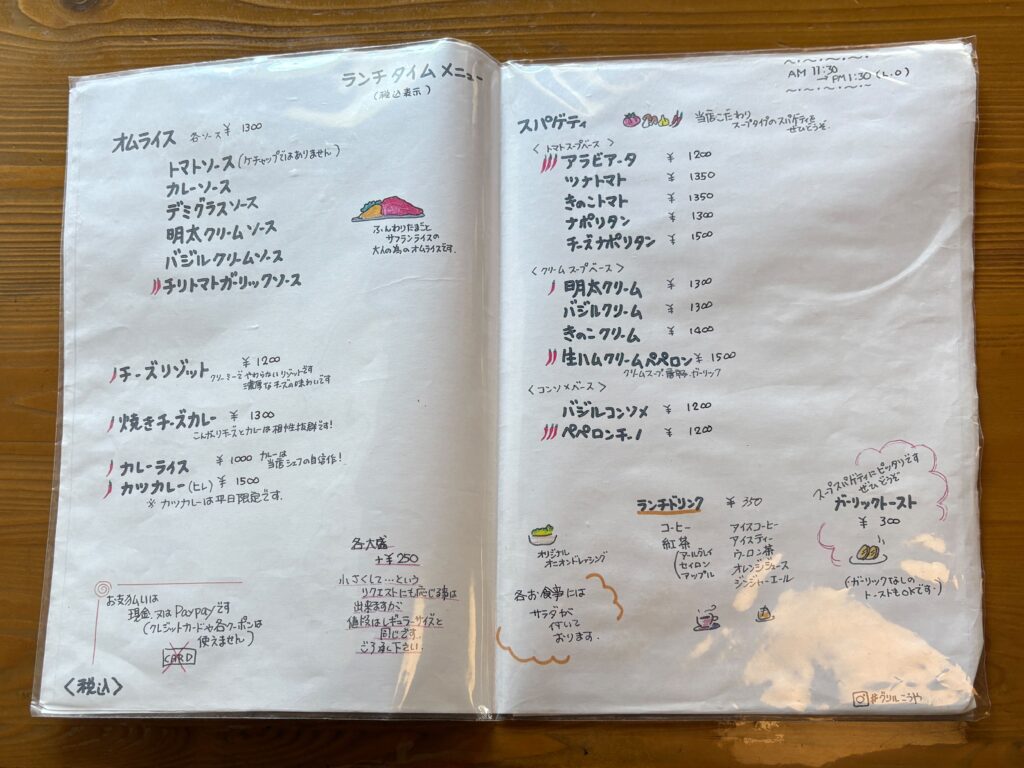 ランチタイムメニュー
(税込表示)
オムライス 各ソース ¥ 1300
トマトソース(ケチャップではありません)
カレーソース
デミグラスソース
明太クリームソース
バジルクリームソース
チリトマトガーリックソース
ふんわりたまごと
サフランライスの
大人の為のオムライスです。
チーズリゾット ¥ 1200
クリーミーでやわらかいリゾットです
濃厚なチーズの味わいです
焼きチーズカレー ¥ 1300
こんがりチーズとカレーは相性抜群です!
カレーライス ¥ 1000 カレーは
当店シェフの自信作!
カツカレー(ヒレ) ¥ 1500
※ カツカレーは平日限定です.
各大盛
+¥250
小さくして…という
リクエストにも応じる事は
出来ますが
値段はレギュラーサイズと
同じです.
ご了承下さい.
お支払いは
現金.又はPayPayです
(クレジットカードや各クーポンは
使えません)
CARD
〈税込〉
AM 11:30
→PM1:30(L.O)
スパゲティ
当店こだわり
スープタイプのスパゲティを
ぜひどうぞ.
〈トマトスープベース〉
アラビアータ ¥ 1200
ツナトマト ¥ 1350
きのこトマト ¥ 1350
ナポリタン ¥ 1300
チーズナポリタン ¥ 1500
〈クリームスープベース〉
明太クリーム ¥ 1300
バジルクリーム ¥ 1300
きのこクリーム ¥ 1400
生ハムクリームペペロン ¥ 1500
クリームスープ.唐辛子.ガーリック
〈コンソメベース〉
バジルコンソメ ¥ 1200
ペペロンチーノ ¥ 1200
ランチドリンク ¥ 350
コーヒー
紅茶
(アールグレイ
セイロン
アップル
アイスコーヒー
アイスティー
ウーロン茶
オレンジジュース
ジンジャーエール
スープスパゲティにピッタリです
ぜひどうぞ
ガーリックトースト
¥ 300
(ガーリックなしの
トーストもOKです・)
オリジナル
オニオンドレッシング
各お食事には
サラダが
付いて
おります.
#グリルこうや